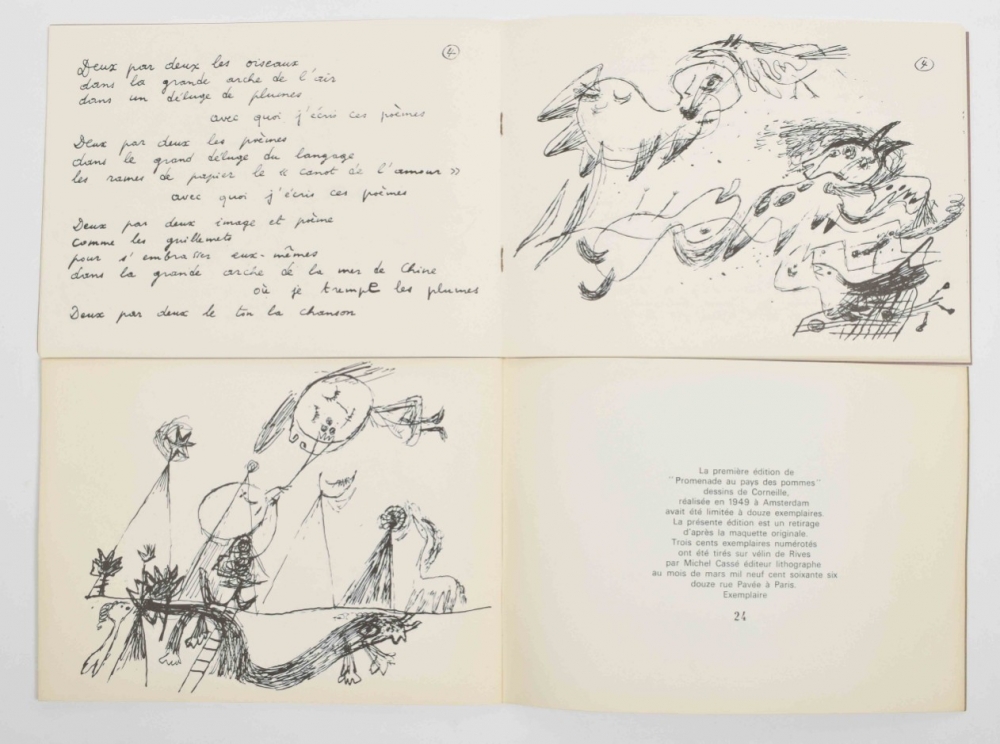 4
Deux par deux les oiseaux
dans la grande arche de l'air
dans un déluge de plumes
avec quoi j'écris ces poèmes
Deux par deux les poèmes
dans le grand déluge du langage
les rames de papier le « canot de l'amour »
avec quoi j'écris ces poèmes
Deux par deux image et poème
comme les guillemets
pour s'embrasser eux-mêmes
dans la grande arche de la mer de Chine
où je trempe les plumes
Deux par deux le ton la chanson
4
La première édition de
"Promenade au pays des pommes"
dessins de Corneille,
réalisée en 1949 à Amsterdam
avait été limitée à douze exemplaires.
La présente édition est un retirage
d'après la maquette originale.
Trois cents exemplaires numérotés
ont été tirés sur vélin de Rives
par Michel Cassé éditeur lithographe
au mois de mars mil neuf cent soixante six
douze rue Pavée à Paris.
Exemplaire
24